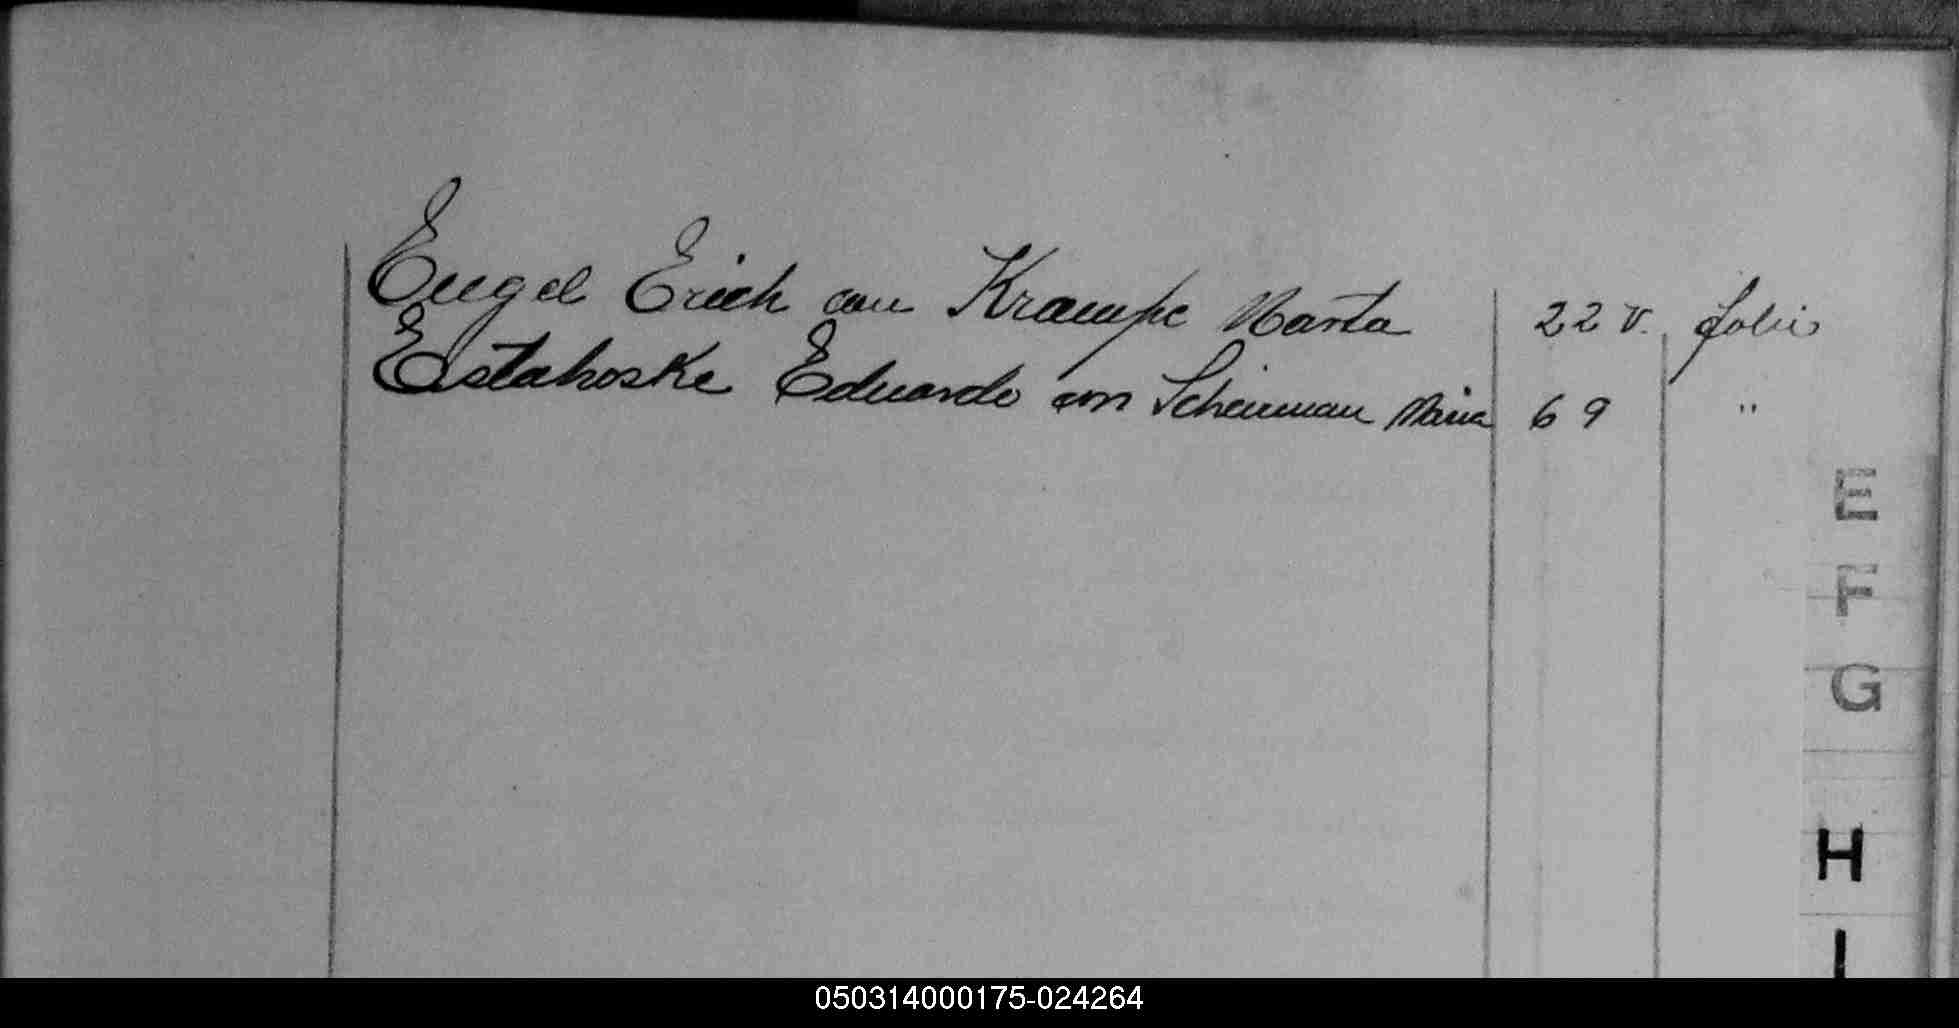 Engel Erich con Krampe Marta 22 v. folio
Estahoske Eduardo con Scheuman Maria 69 "
E
F
G
H
I
050314000175-024264